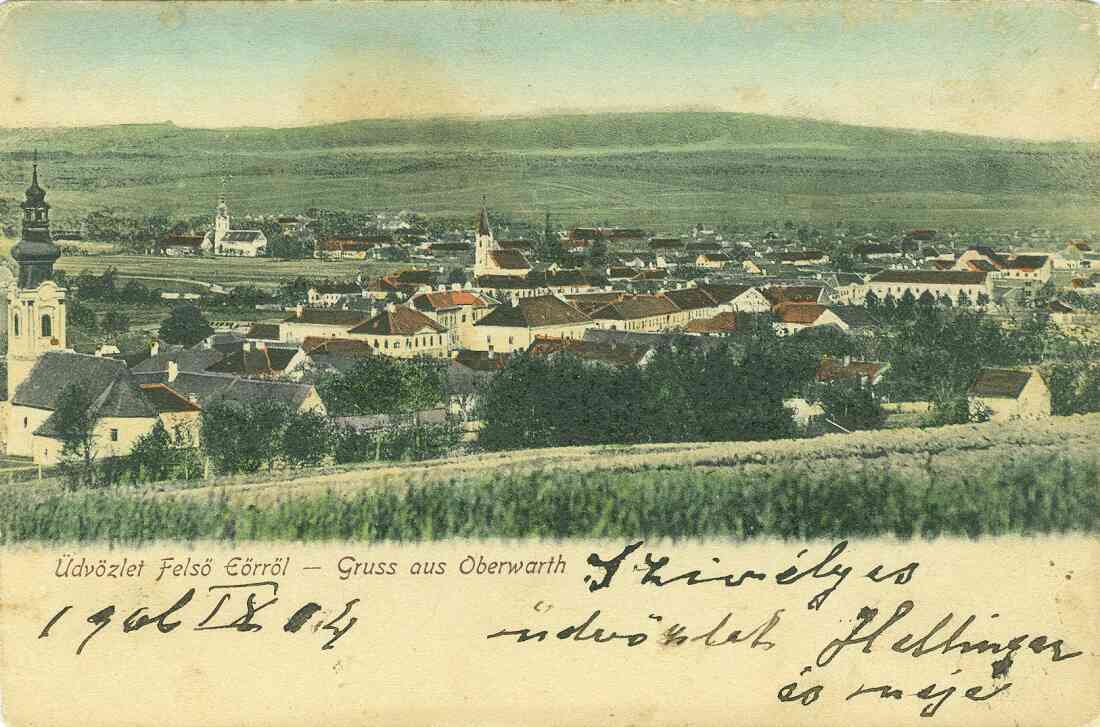 Üdvözlet Felső Eőrről – Gruss aus Oberwarth
1906 IX 04
Szivélyes
üdvözlet Hellinger
és neje